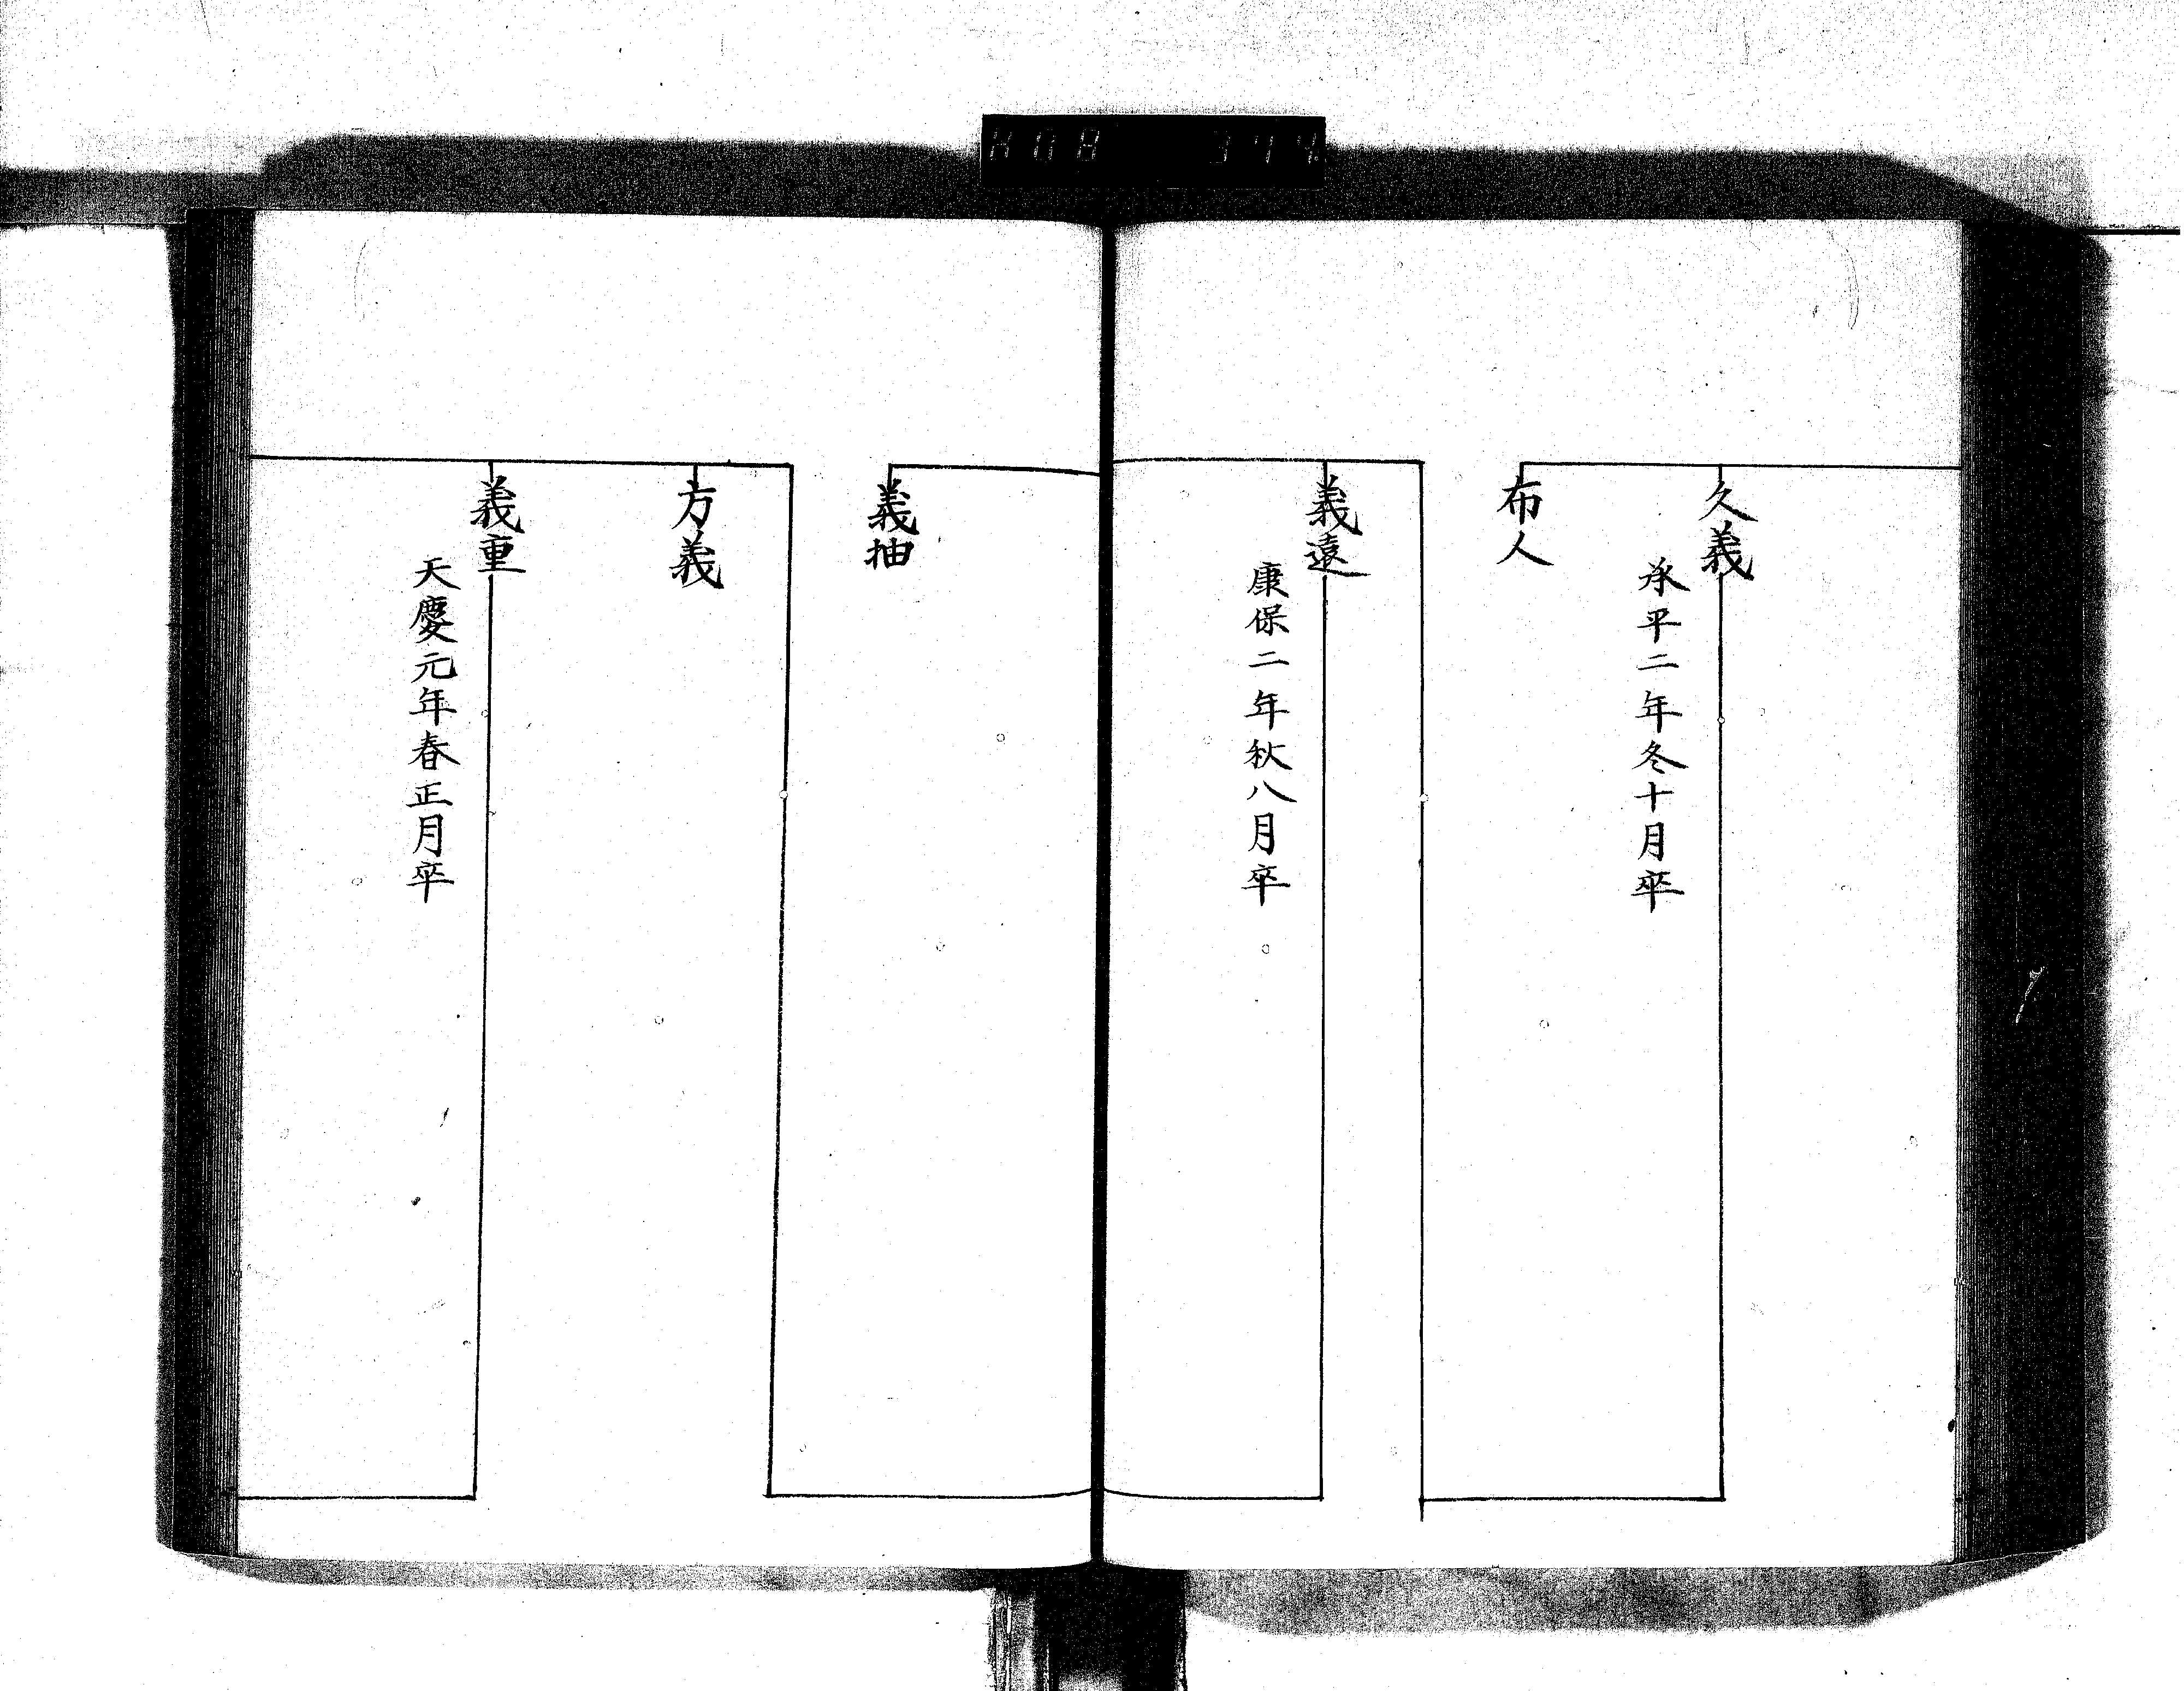 H08 374
久義
承平二年冬十月卒
布人
義遠
康保二年秋八月卒
義抽
方義
義重
天慶元年春正月卒